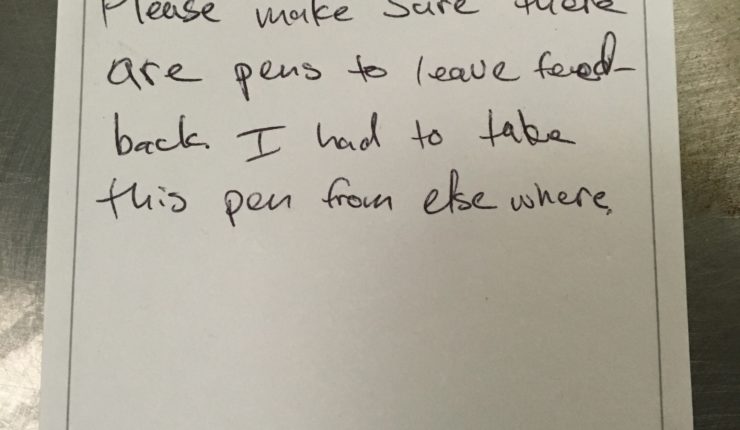 Please make sure there
are pens to leave feed-
back. I had to take
this pen from else where.